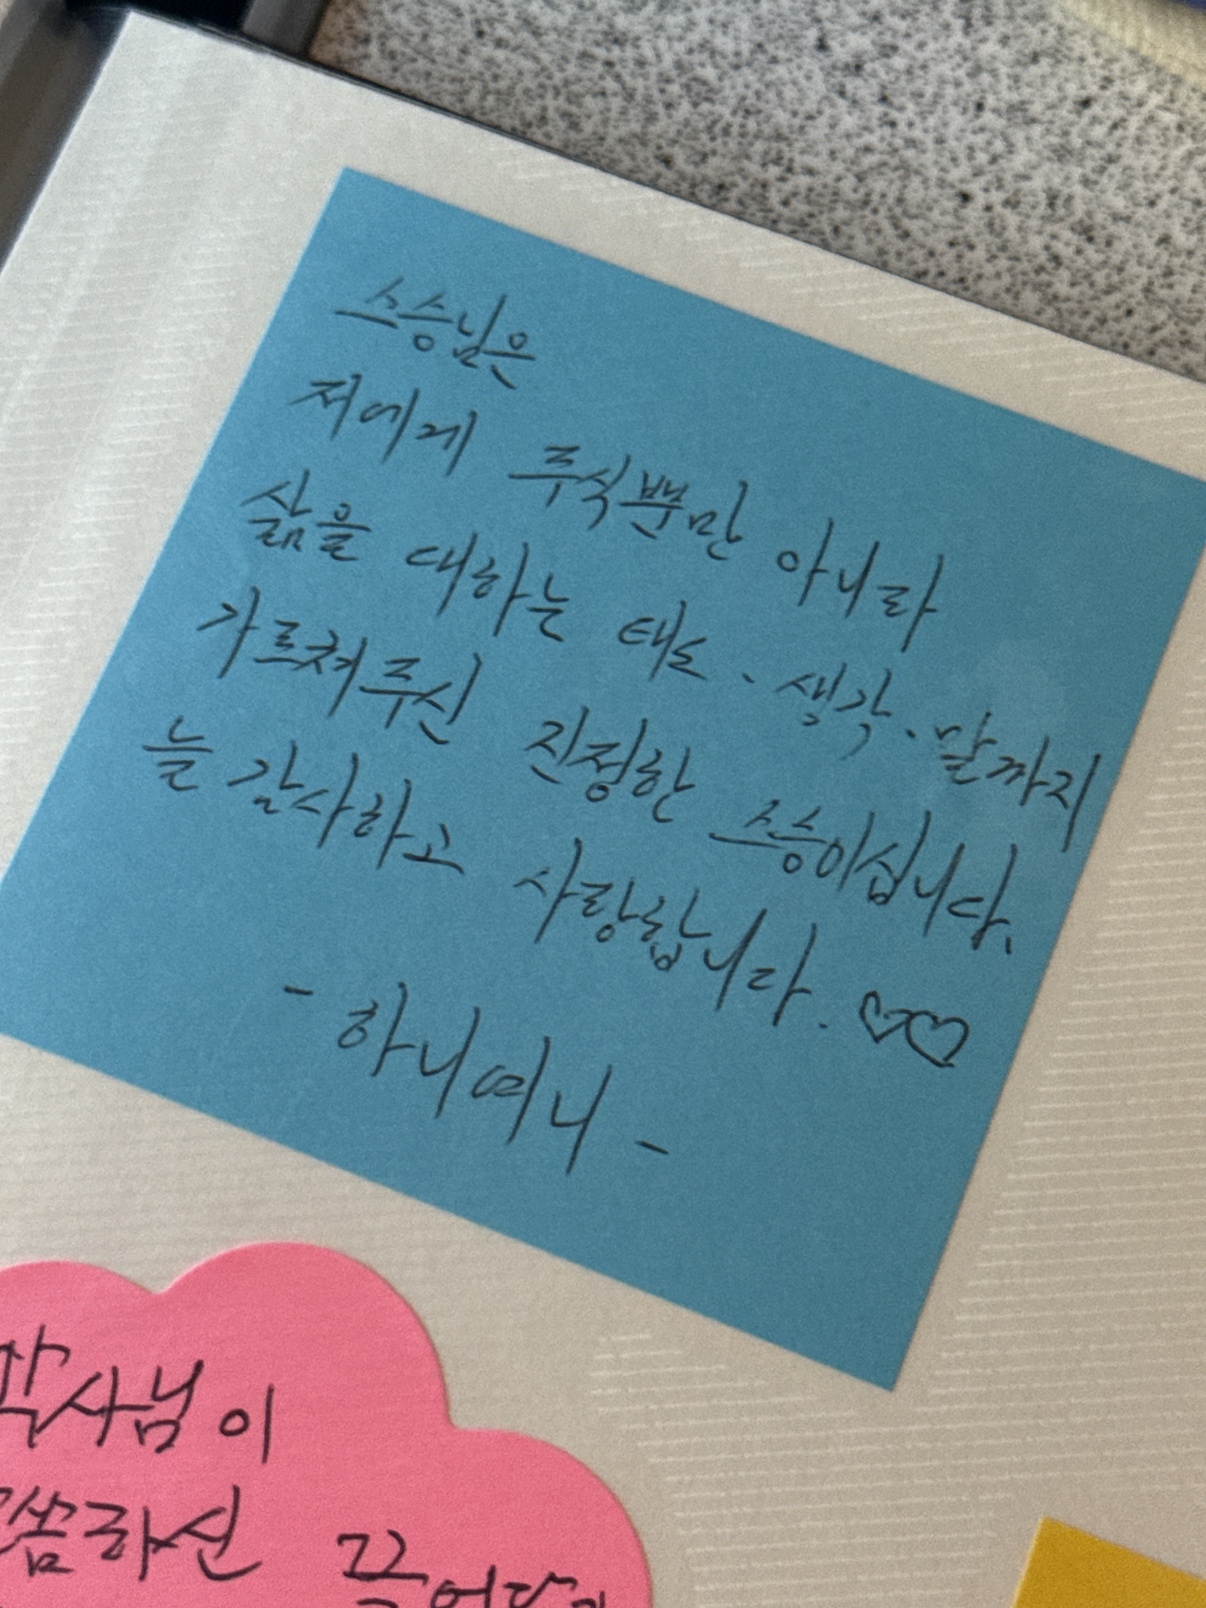 스승님은
저에게 주식뿐만 아니라
삶을 대하는 태도、생각、말까지
가르쳐주신 진정한 스승이십니다、
늘 감사하고 사랑합니다. ♡♡
- 하니여니 -
박사님이
말씀하신